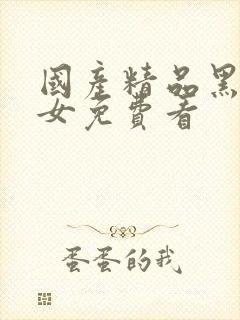 國產精品黑
女免費看
蛋蛋的我